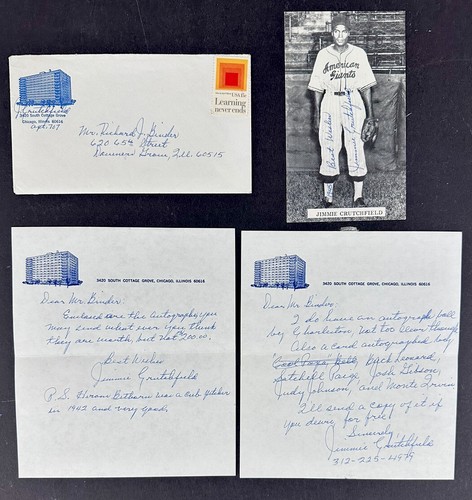 J. Crutchfield
3420 South Cottage Grove
Chicago, Illinois 60616
Apt. 707
USA 15c
Learning
never ends
Mr. Richard J. Binder
620 65th Street
Downers Grove, Ill. 60515
American
Giants
Best Wishes
Jimmie Crutchfield
JIMMIE CRUTCHFIELD
3420 SOUTH COTTAGE GROVE, CHICAGO, ILLINOIS 60616
Dear Mr Binder.
Enclosed are the autographs, you
may send what ever you think
they are worth, but not 200.00.
Best Wishes
Jimmie Crutchfield
P.S. Hiram Bithorn was a Cub pitcher
in 1942 and very good.
3420 SOUTH COTTAGE GROVE, CHICAGO, ILLINOIS 60616
Dear Mr Binder
I do have an autograph ball
by Charleston, not too clear though
Also a card autographed by
"Cool Papa" Bell, Buck Leonard,
Satchell Paige, Josh Gibson,
Judy Johnson, and Monte Irvin
I'll send a copy of it if
you desire, for free.
Sincerely,
Jimmie Crutchfield
312-225-4979